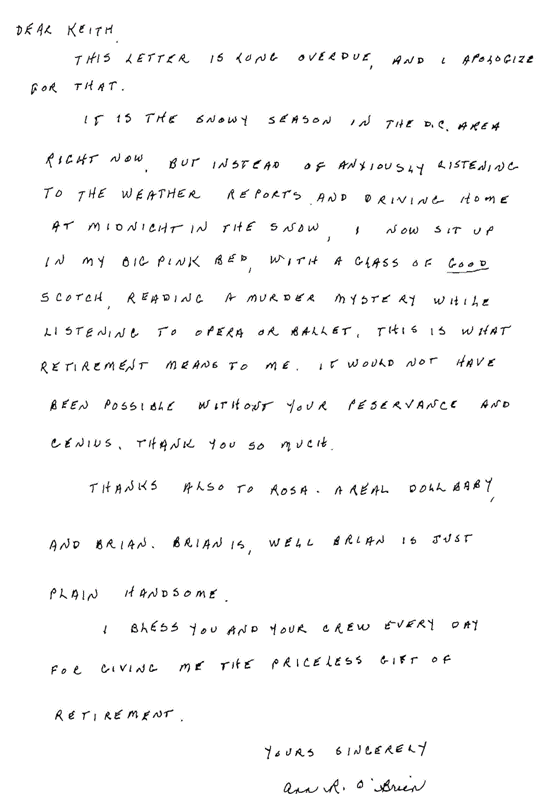 DEAR KEITH,
THIS LETTER IS LONG OVERDUE, AND I APOLOGIZE
FOR THAT.
IT IS THE SNOWY SEASON IN THE D.C. AREA
RIGHT NOW, BUT INSTEAD OF ANXIOUSLY LISTENING
TO THE WEATHER REPORTS, AND DRIVING HOME
AT MIDNIGHT IN THE SNOW, I NOW SIT UP
IN MY BIG PINK BED, WITH A GLASS OF GOOD
SCOTCH, READING A MURDER MYSTERY WHILE
LISTENING TO OPERA OR BALLET. THIS IS WHAT
RETIREMENT MEANS TO ME. IT WOULD NOT HAVE
BEEN POSSIBLE WITHOUT YOUR PESERVANCE AND
GENIUS. THANK YOU SO MUCH.
THANKS ALSO TO ROSA. A REAL DOLL BABY,
AND BRIAN. BRIAN IS, WELL BRIAN IS JUST
PLAIN HANDSOME.
I BLESS YOU AND YOUR CREW EVERY DAY
FOR GIVING ME THE PRICELESS GIFT OF
RETIREMENT.
YOURS SINCERELY
Ann R. O'Brien